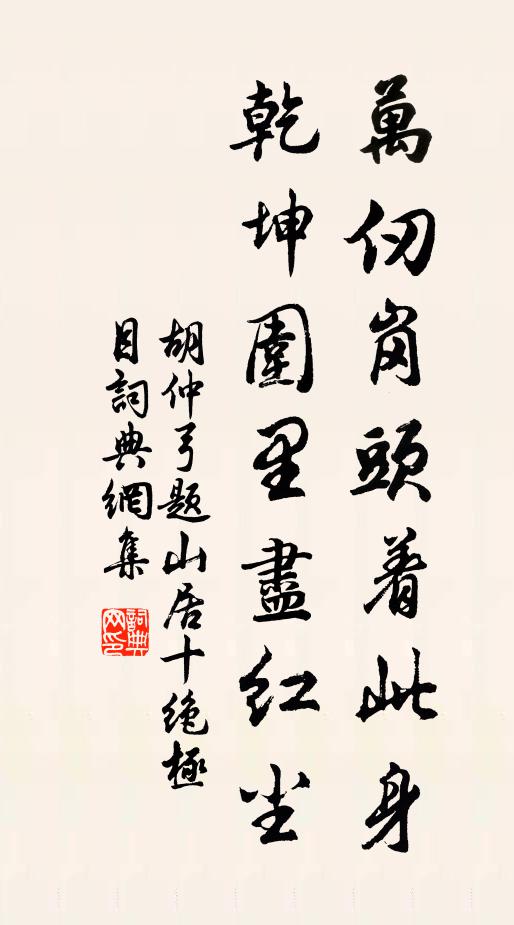 萬仞崗頭着此身
乾坤圍里盡红尘
胡仲弓题山居十绝極
目詞典網集
詞典网印